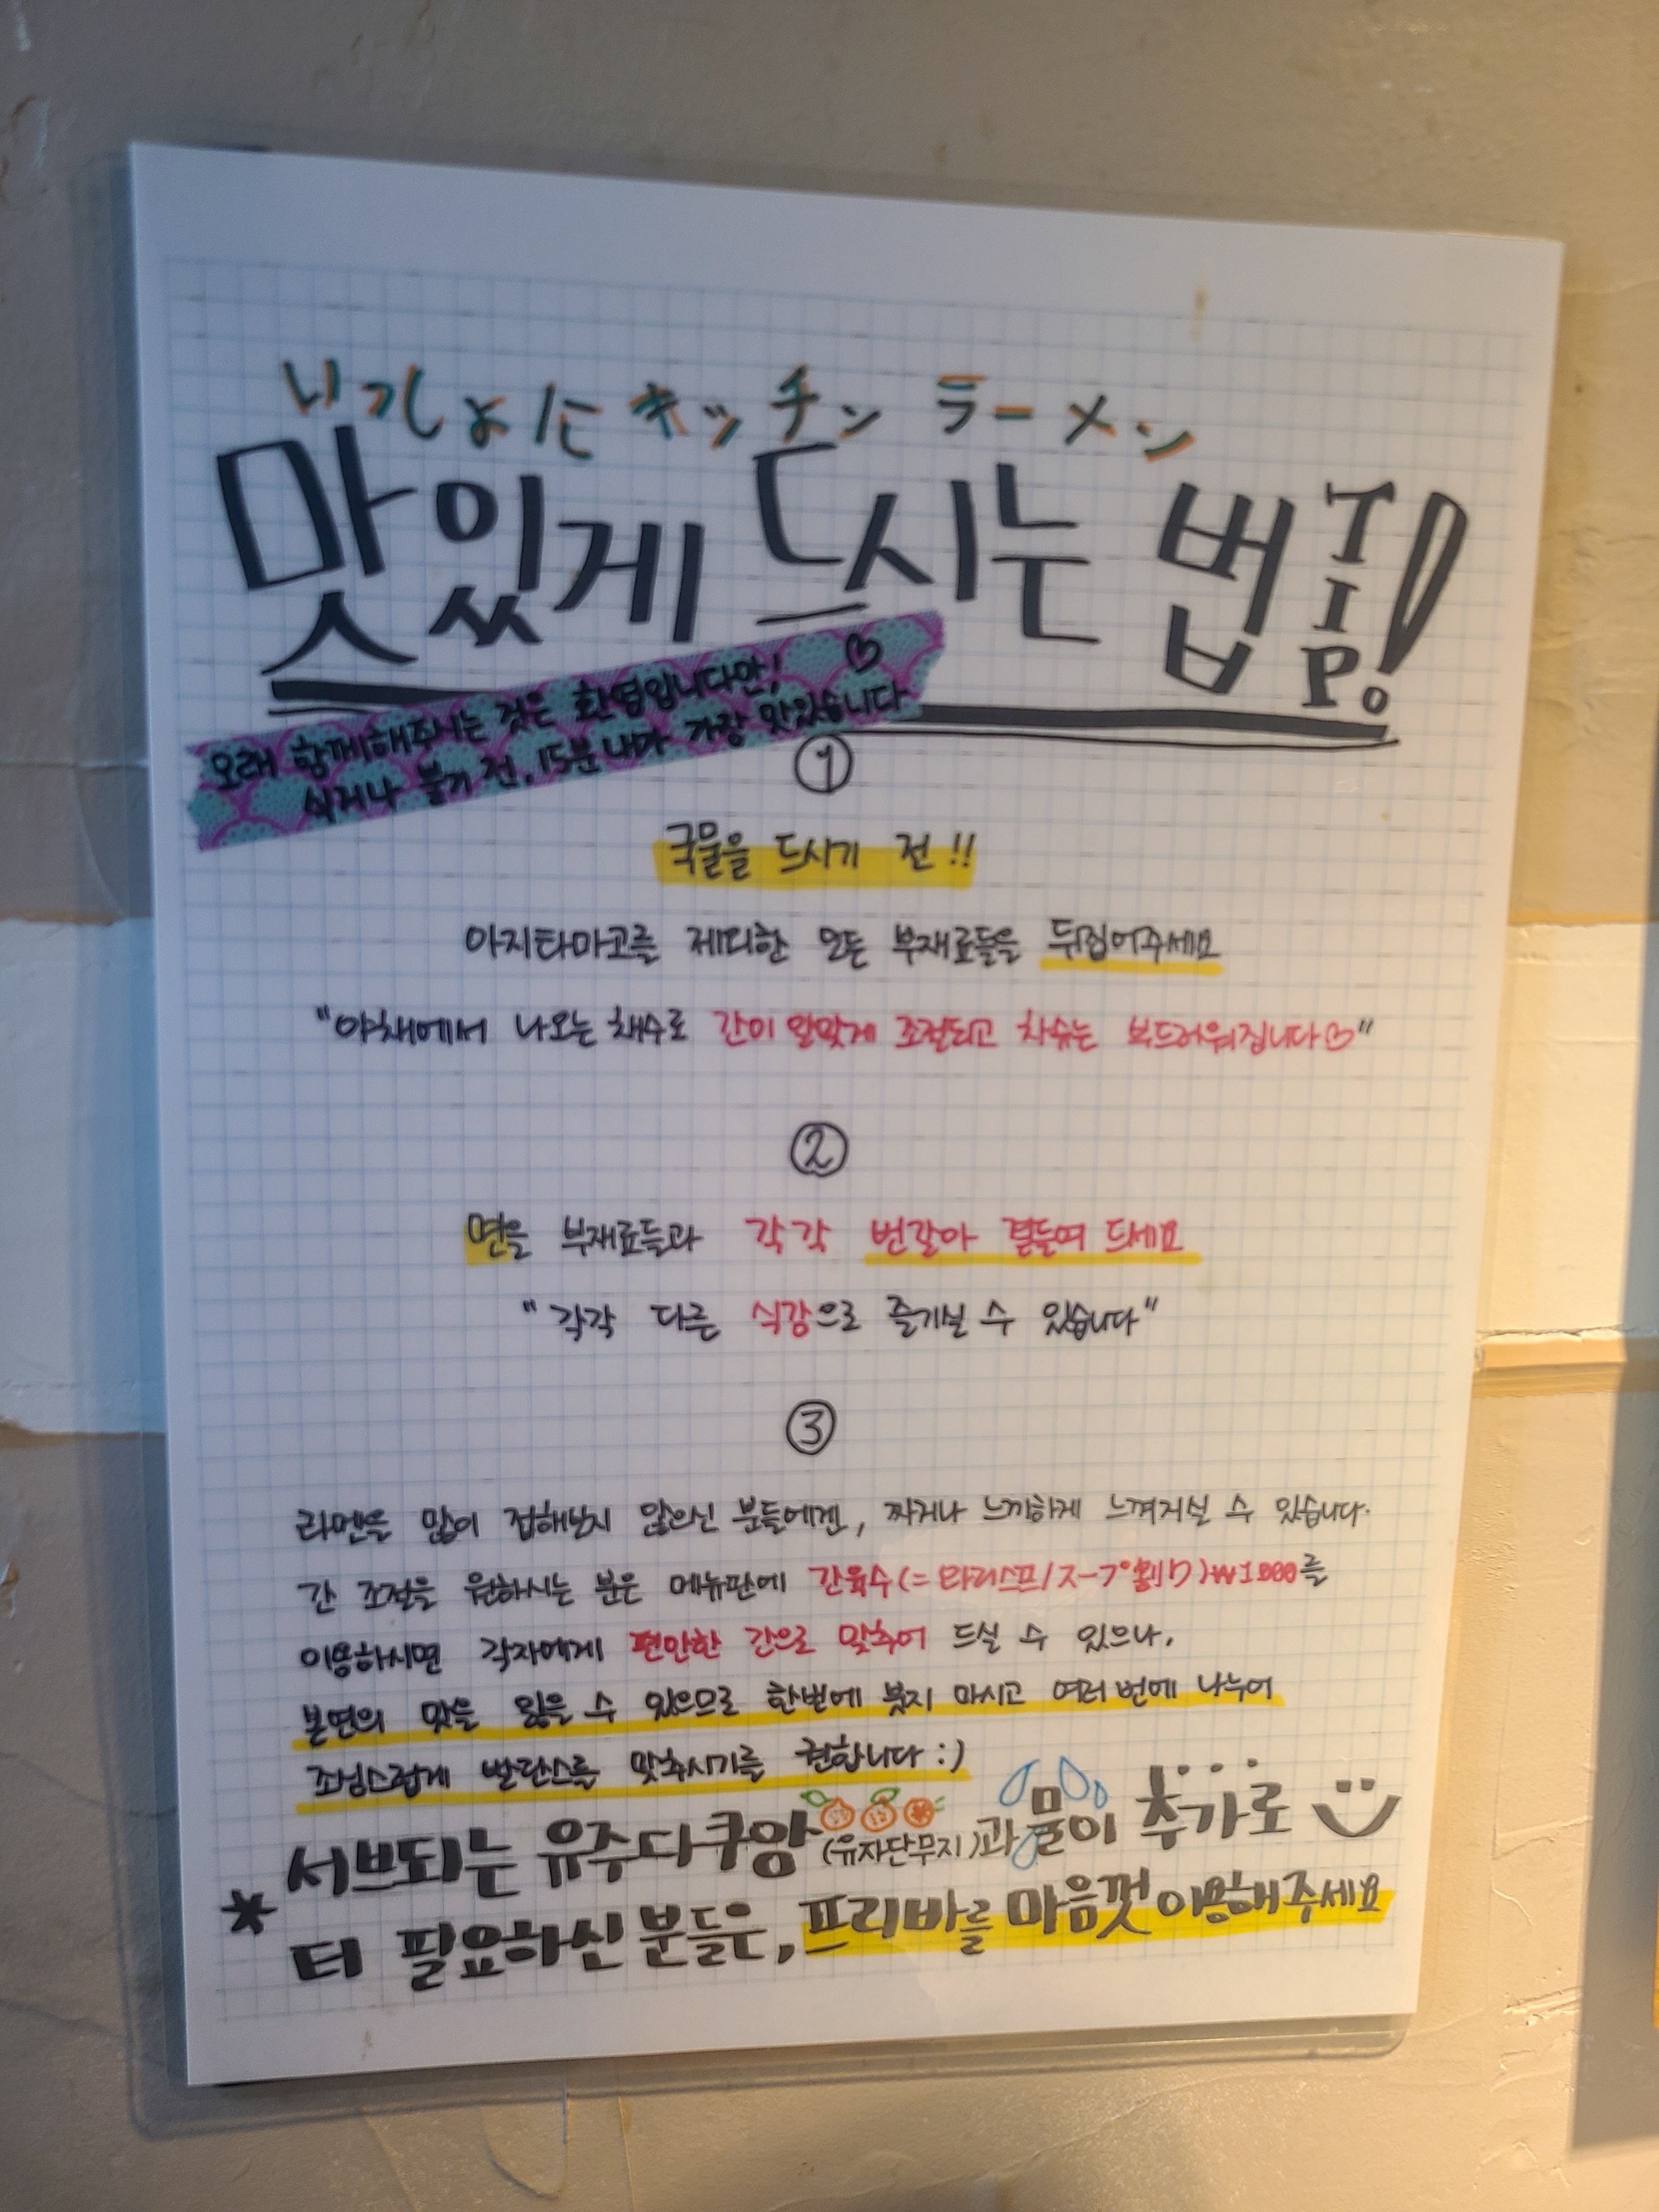 いっしょにキッチン ラーメン
맛있게 드시는 법 TIP!
오래 함께해주시는 것은 환영입니다만! ♡
식거나 불기 전, 15분 내가 가장 맛있습니다
①
국물을 드시기 전!!
아지타마고를 제외한 모든 부재료들을 뒤집어주세요
"야채에서 나오는 채수로 간이 알맞게 조절되고 차슈는 부드러워집니다♡"
②
면을 부재료들과 각각 번갈아 곁들여 드세요
"각각 다른 식감으로 즐기실 수 있습니다"
③
라멘을 많이 접해보시지 않으신 분들에겐, 짜거나 느끼하게 느껴지실 수 있습니다.
간 조절을 원하시는 분은 메뉴판에 간육수(=와리스프/スープ割り)₩1000를
이용하시면 각자에게 편안한 간으로 맞추어 드실 수 있으나,
본연의 맛을 잃을 수 있으므로 한번에 붓지 마시고 여러번에 나누어
조심스럽게 밸런스를 맞추시기를 권합니다 :)
* 서브되는 유주다쿠앙(유자단무지)과 물이 추가로
더 필요하신 분들은, 프리바를 마음껏 이용해주세요